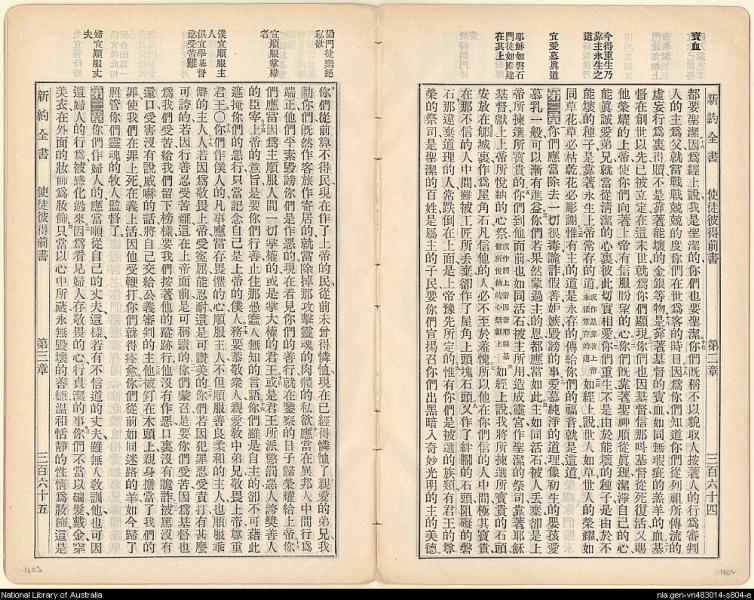 寶血
今得重生乃
靠主永生之
道
宜愛慕眞道
耶穌如磐石
門徒如殿建
在其上
新約全書 使徒彼得前書 第二章 三百六十四
都要聖潔因爲經上說我是聖潔的你們也要聖潔你們既稱不以貌取人按著人的行爲審判
人的主爲父就當戰戰兢兢的度你們在世爲客的時日因爲你們知道你們從列祖所傳流的
虛妄行爲裏得贖不是靠著能壞的金銀等物是靠著基督的寶血如同無瑕疵的羔羊的血基
督在創世以先已被立定在這末世就爲你們顯現你們也因基督信那叫基督從死復活又賜
他榮耀的上帝使你們向著上帝有信服盼望的心你們既靠著聖神順從眞理潔淨自己的心
能眞誠愛弟兄就當從清潔的心裏彼此切實相愛你們重生不是由於能壞的種子是由於不
能壞的種子是靠著永生上帝常存的道 如經上說世人如草世人的榮耀如
同草花草必枯乾花必凋謝惟有主的道是永存的傳給你們的福音就是這道
第二章你們應當除去一切很毒詭詐假善嫉妒毀謗的事愛慕純淨的道理像初生的嬰孩愛
慕乳一般可以漸有進益你們若果然蒙過主的恩都應當如此主如同活石被人丟棄卻是上
帝所揀選所寶貴的你們到他面前也如同活石被主所用造成靈宮作聖潔的祭司靠著耶穌
基督獻上上帝所悅納的心祭 如經上說我將所揀選所寶貴的頭石
安放在郇城裏作爲屋角石凡信他的人必不至於羞愧所以他在你們信的人中間極其寶貴
在那不信的人中間雖被工匠所丟棄卻作了屋角上頭塊石頭又作了絆脚的石頭阻礙的磐
石那違棄道理的人常跌倒在上面是上帝豫先所定的惟有你們是被選的族類有君王的尊
榮的祭司是聖潔的百姓是屬主的子民要你們宣揚召你們出黑暗入奇妙光明的主的美德
勸門徒棄絕
私欲
宜順服掌權
者
僕宜順服主
人
俱宜學基督
忍受苦難
婦宜順服丈
夫
你們從前算不得民現在作了上帝的民從前未曾得憐恤現在已經得憐恤了親愛的弟兄我
勸你們既然作客旅作寄居的就當除掉那攻擊靈魂的肉體的私欲應當在異邦人中間行爲
端正他們平素毀謗你們是作惡的現在看見你們的善行就在鑒察的日子歸榮耀給上帝你
們應當因爲主順服人間一切掌權的或是掌大權的君王或是君王所派懲罰惡人誇獎善人
的臣宰上帝的意旨是要你們行善止住那愚蠢人無知的言語你們雖是自主的卻不可藉此
遮掩你們的惡行只當記念自己是上帝的僕人務要恭敬衆人親愛教中弟兄敬畏上帝尊重
君王〇你們作僕人的凡事應當存畏懼的心順服主人不但順服善良柔和的主人也順服乖
僻的主人人若因爲敬畏上帝受寃屈能忍耐這是可讚美的你們若因犯罪忍受責打有甚麼
可誇的若因行善忍受苦難這在上帝面前是可稱讚的你們蒙召是要你們受苦因爲基督也
爲我們受苦給我們留下榜樣要我們按著他的蹤跡行他沒有作惡口裏沒有詭詐被罵沒有
還口受害沒有說威嚇的話將自己交給公義審判的主他被釘在木頭上親身擔當了我們的
罪使我們在罪上死在義上活因他受鞭打你們就得痊愈你們從前如同迷路的羊如今歸了
照管你們靈魂的牧人監督了
第三章你們作婦人的應當順從自己的丈夫這樣若有不信道的丈夫雖無人敎訓他也可因
這婦人的行爲被感化過來因爲看見婦人存敬畏的心行貞潔的事你們不當以編髮戴金穿
美衣在外面的妝飾爲妝飾只當以心中所藏永無毀壞的善德溫和恬靜的性情爲妝飾這是
新約全書 使徒彼得前書 第三章 三百六十五
1603
1602
National Library of Australia
nla.gen-vn483014-s804-e